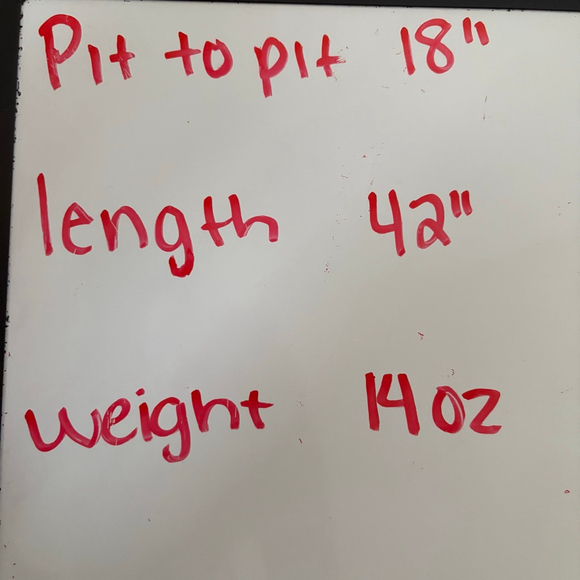 Pit to pit 18"
length 42"
weight 14 oz